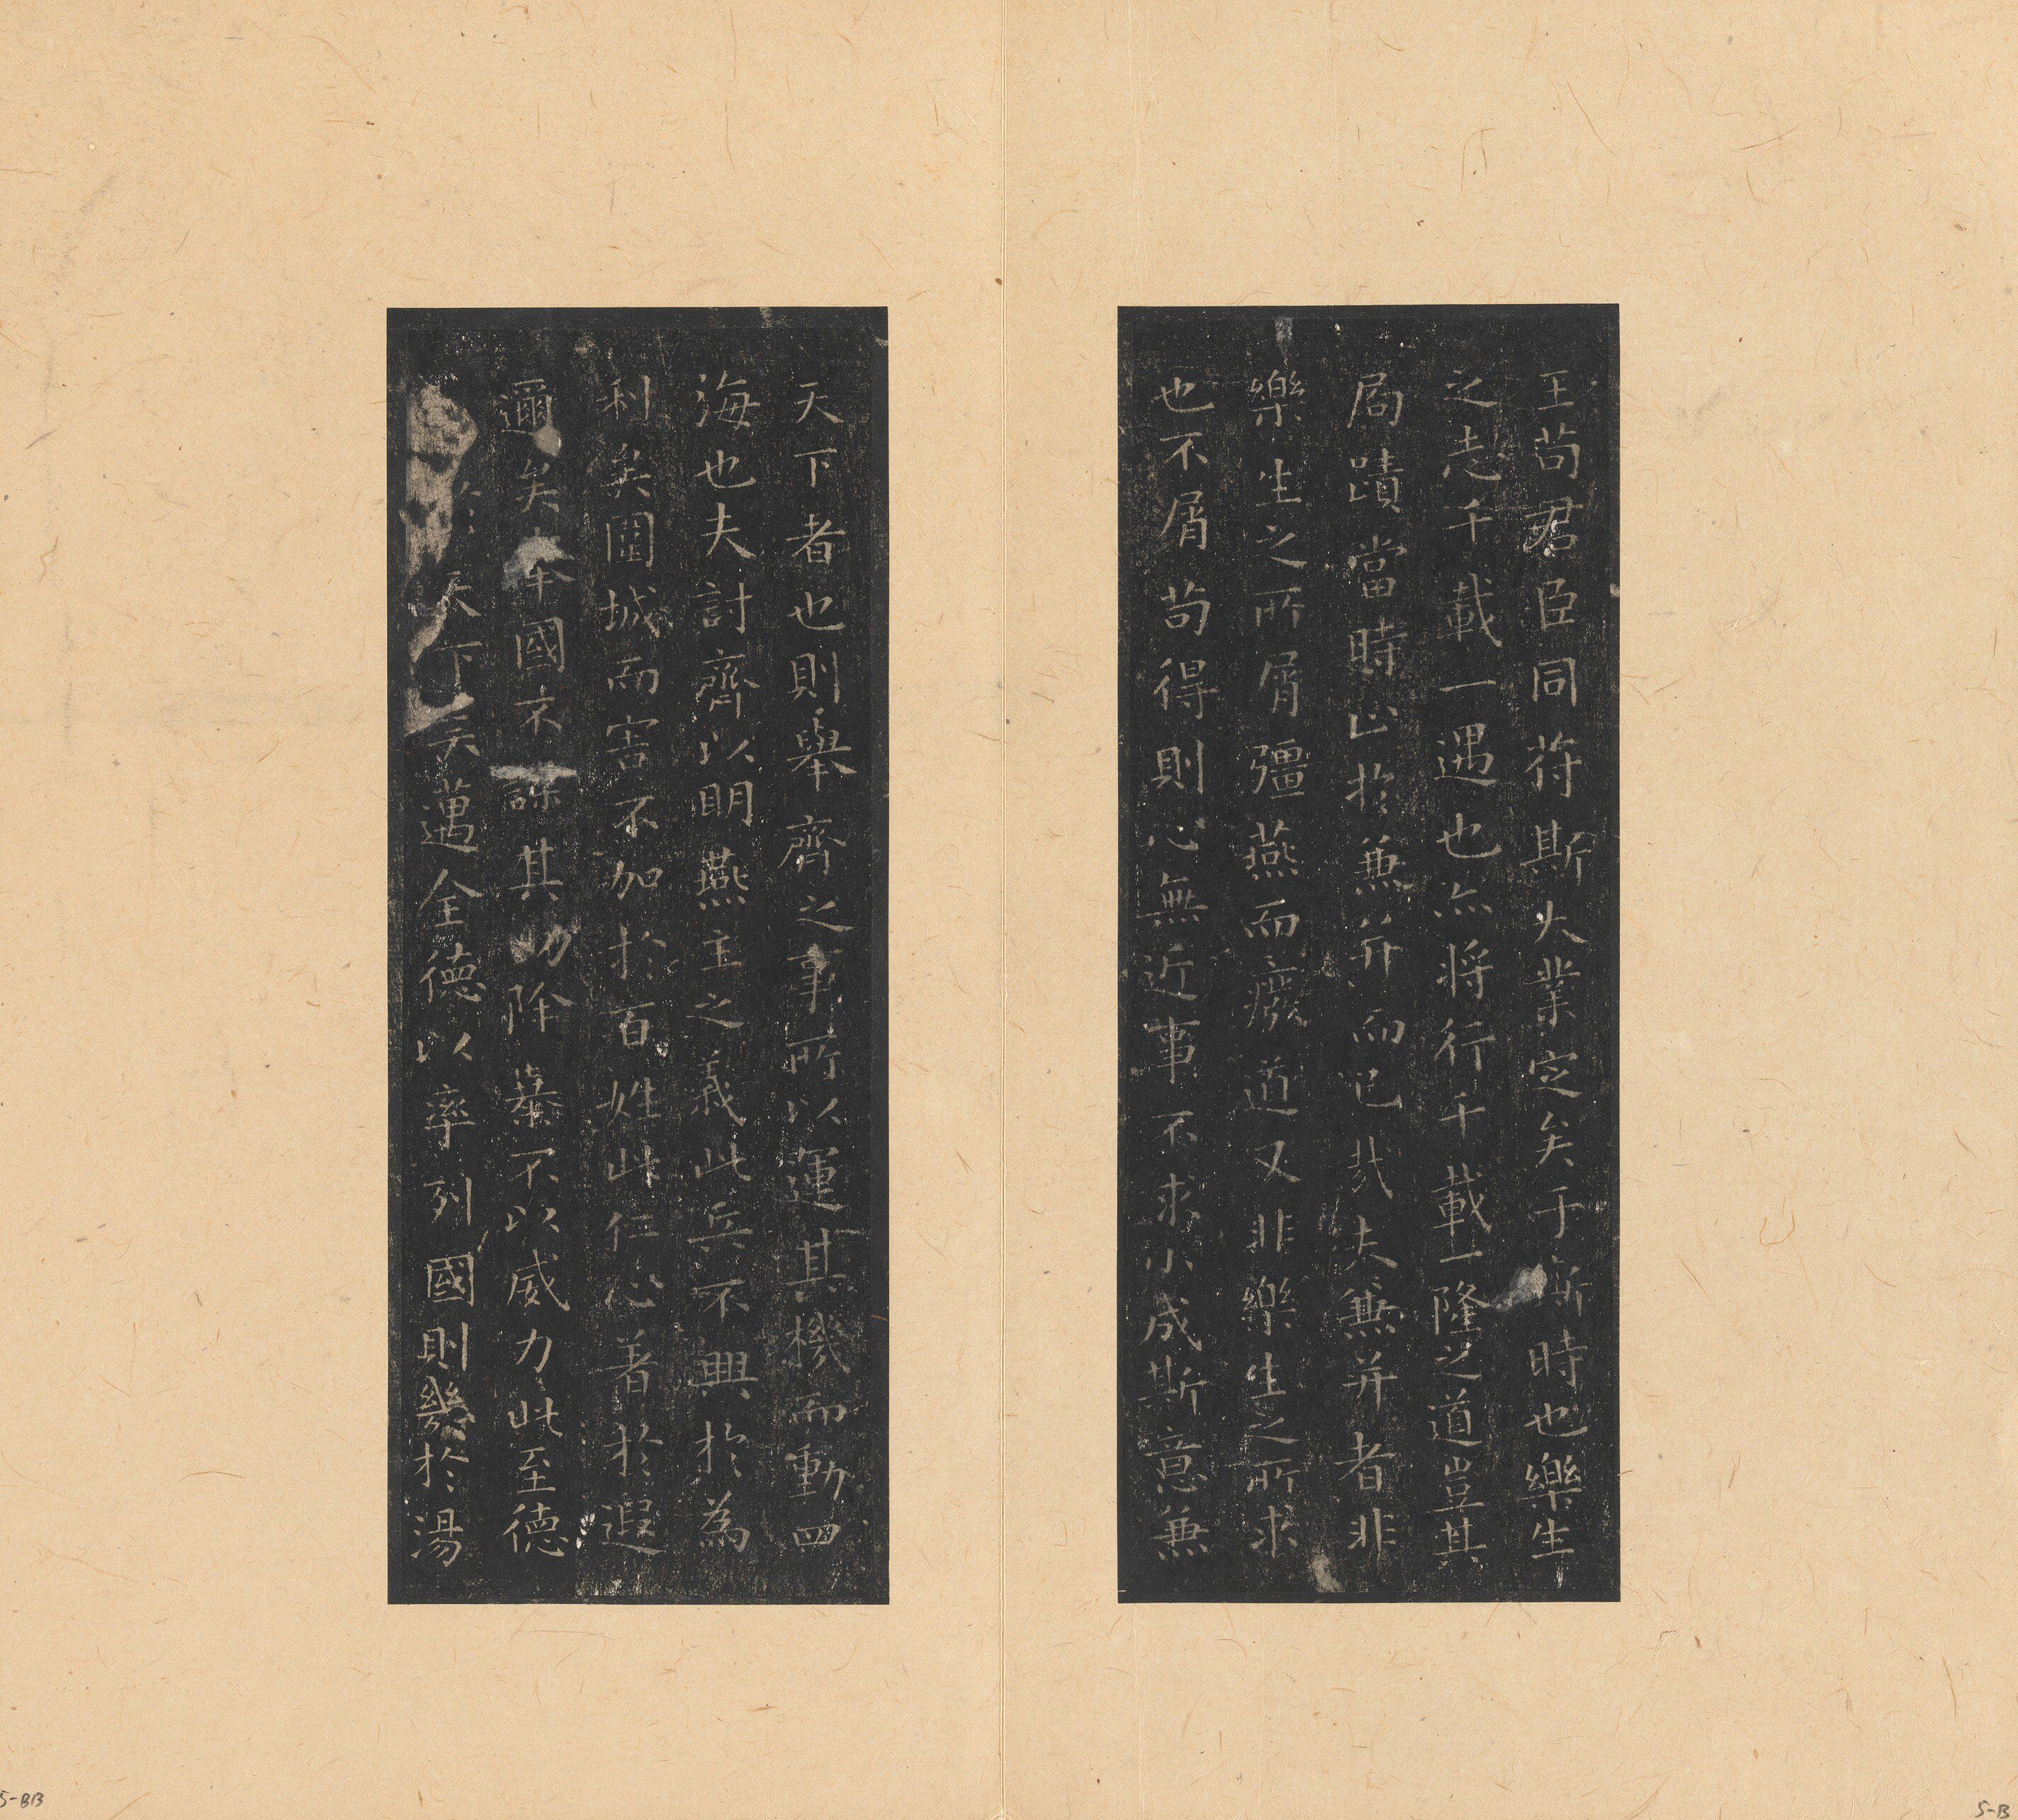 王苟君臣同苻斯大業定矣于斯時也樂生
之志千載一遇也亦將行千載一隆之道豈其
局蹟當時止於兼并而已哉夫兼并者非
樂生之所屑彊燕而癈道又非樂生之所求
也不屑苟得則心無近事不求小成斯意兼
天下者也則舉齊之事所以運其機而動四
海也夫討齊以明燕主之義此兵不興於為
利矣圍城而害不加於百姓此仁心著於遐
邇矣舉國不謀其功除暴不以威力此至德
於天下矣邁全德以率列國則幾於湯
5-BB
5-B